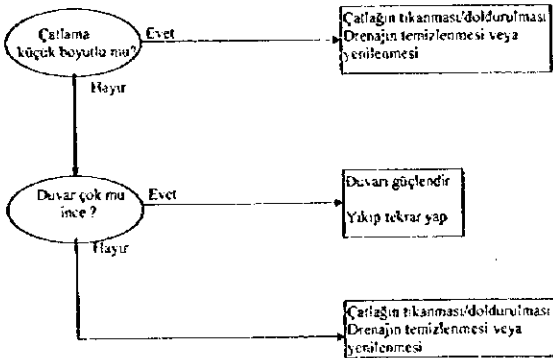 Çatlama
küçük boyutlu mu?
Evet
Çatlağın tıkanması/doldurulması
Drenajın temizlenmesi veya
yenilenmesi
Hayır
Duvar çok mu
ince ?
Evet
Duvarı güçlendir
Yıkıp tekrar yap
Hayır
Çatlağın tıkanması/doldurulması
Drenajın temizlenmesi veya
yenilenmesi